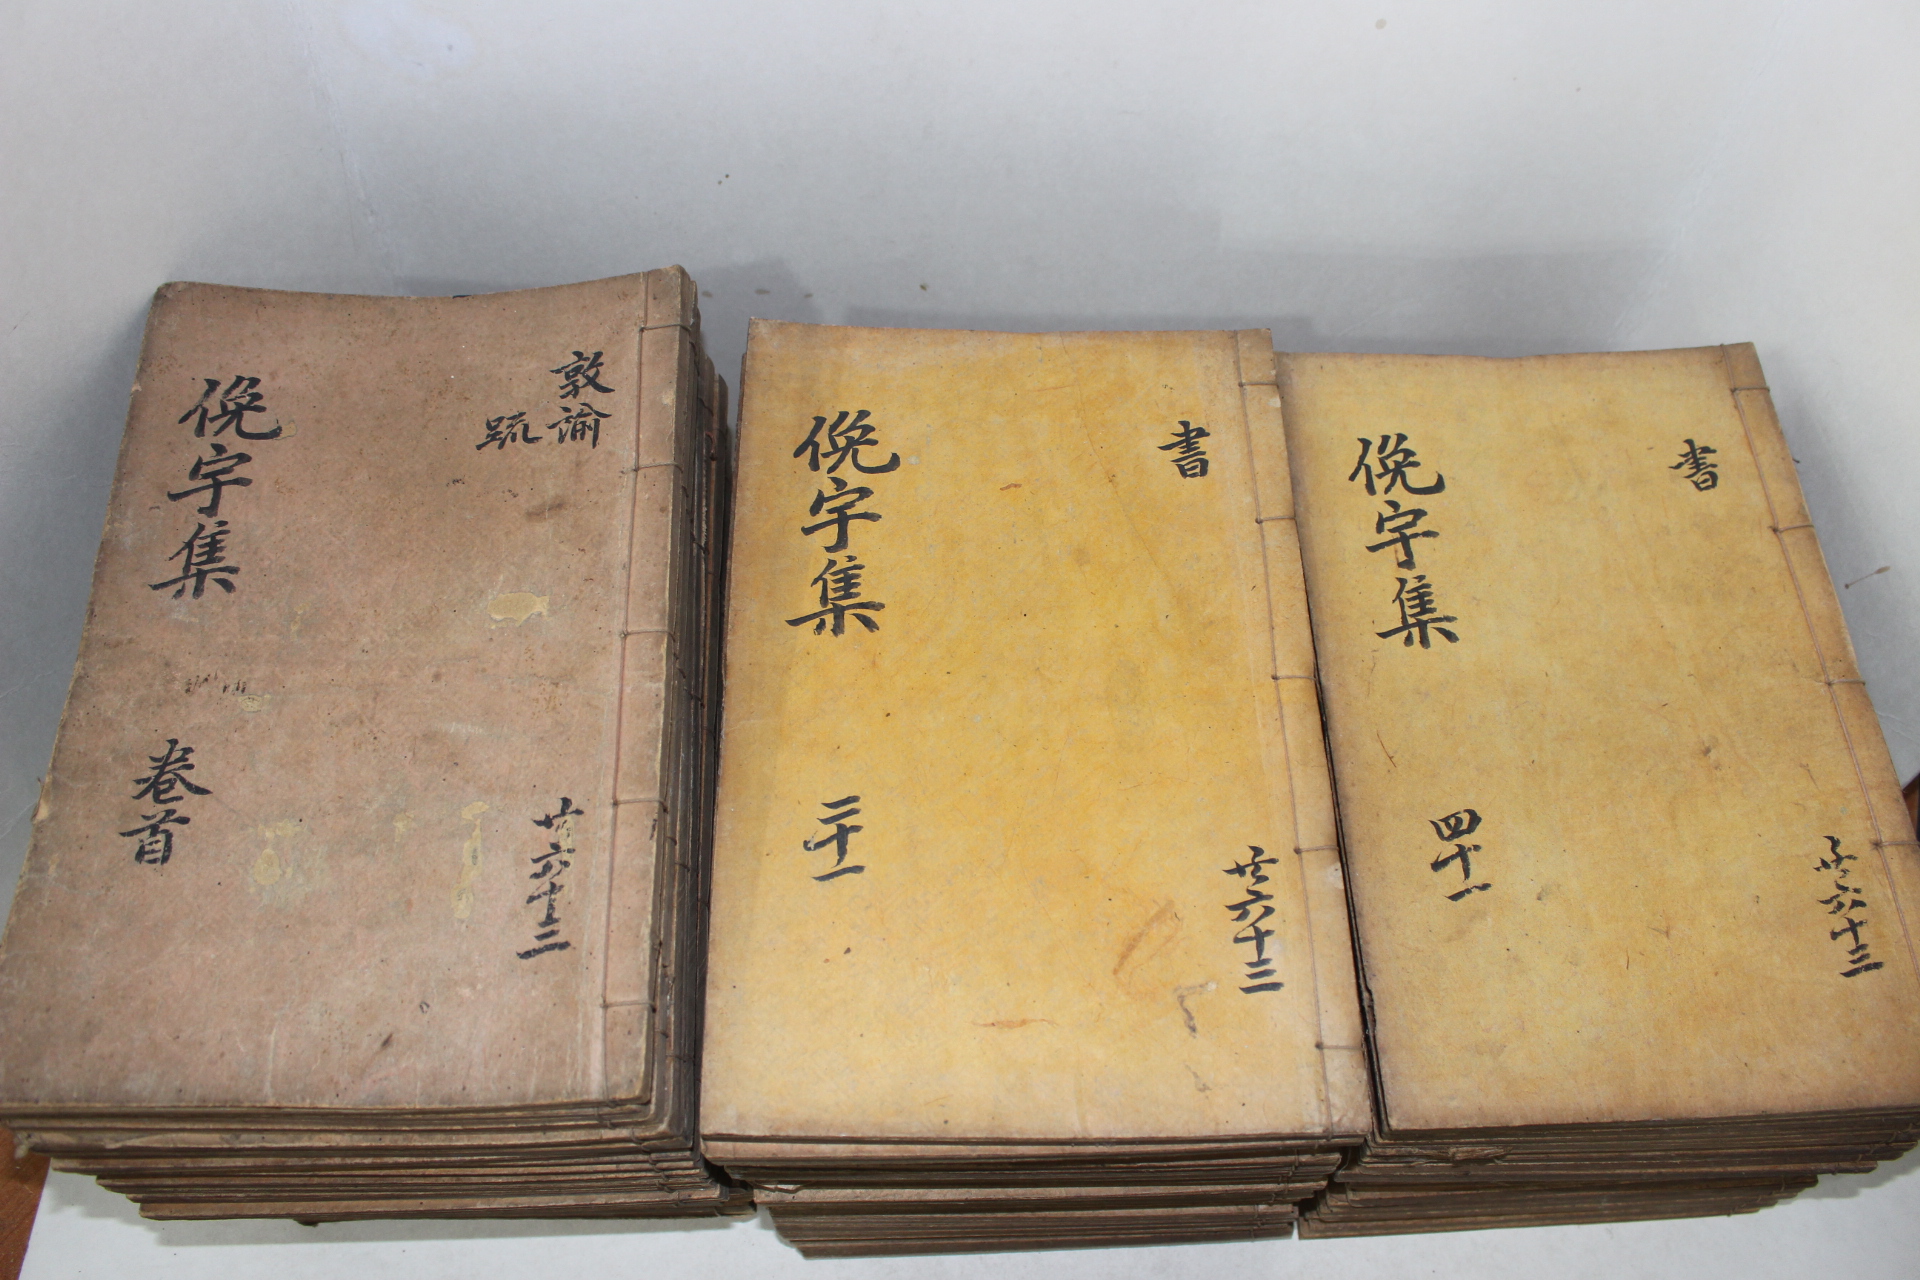 敦諭
疏
俛宇集
卷首
共六十三
書
俛宇集
二十一
共六十三
書
俛宇集
四十一
共六十三